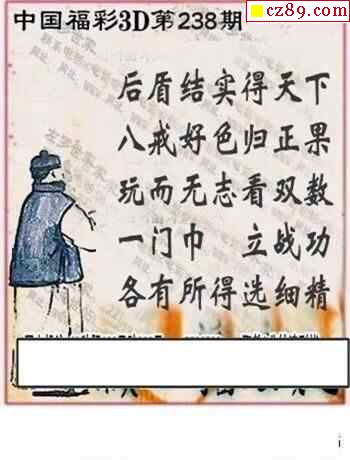 cz89.com
中国福彩3D第238期
后盾结实得天下
八戒好色归正果
玩而无志看双数
一门巾 立战功
各有所得选细精